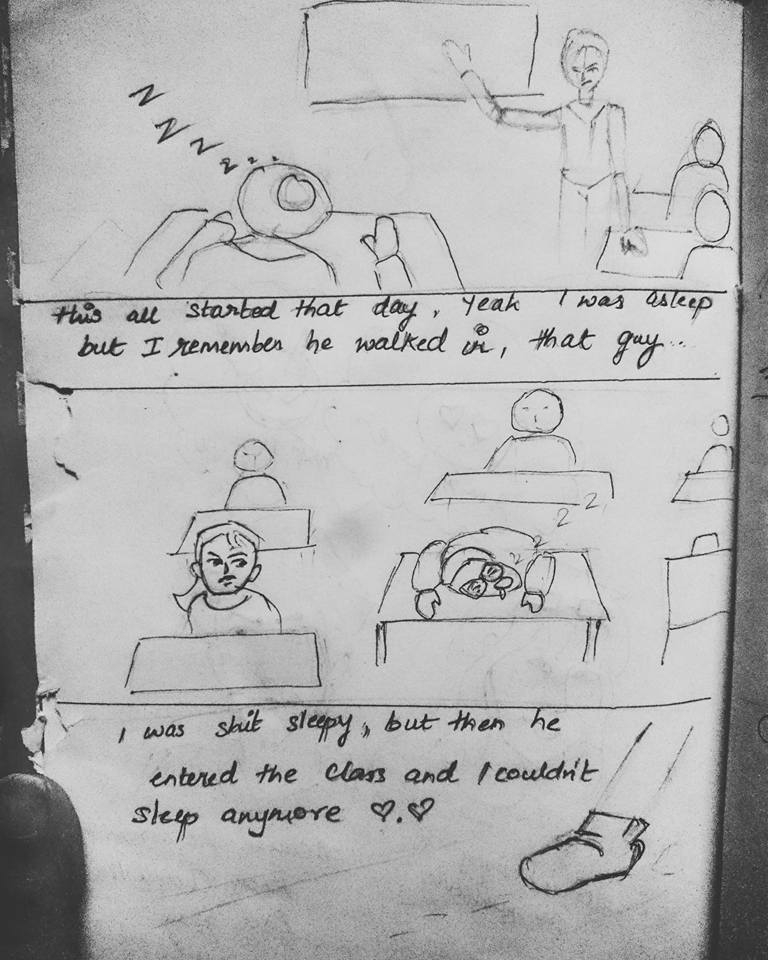 Z Z Z z z z
this all started that day, Yeah I was asleep
but I remember he walked in, that guy...
z z z z
I was shit sleepy, but then he
entered the class and I couldn't
sleep anymore ♡.♡